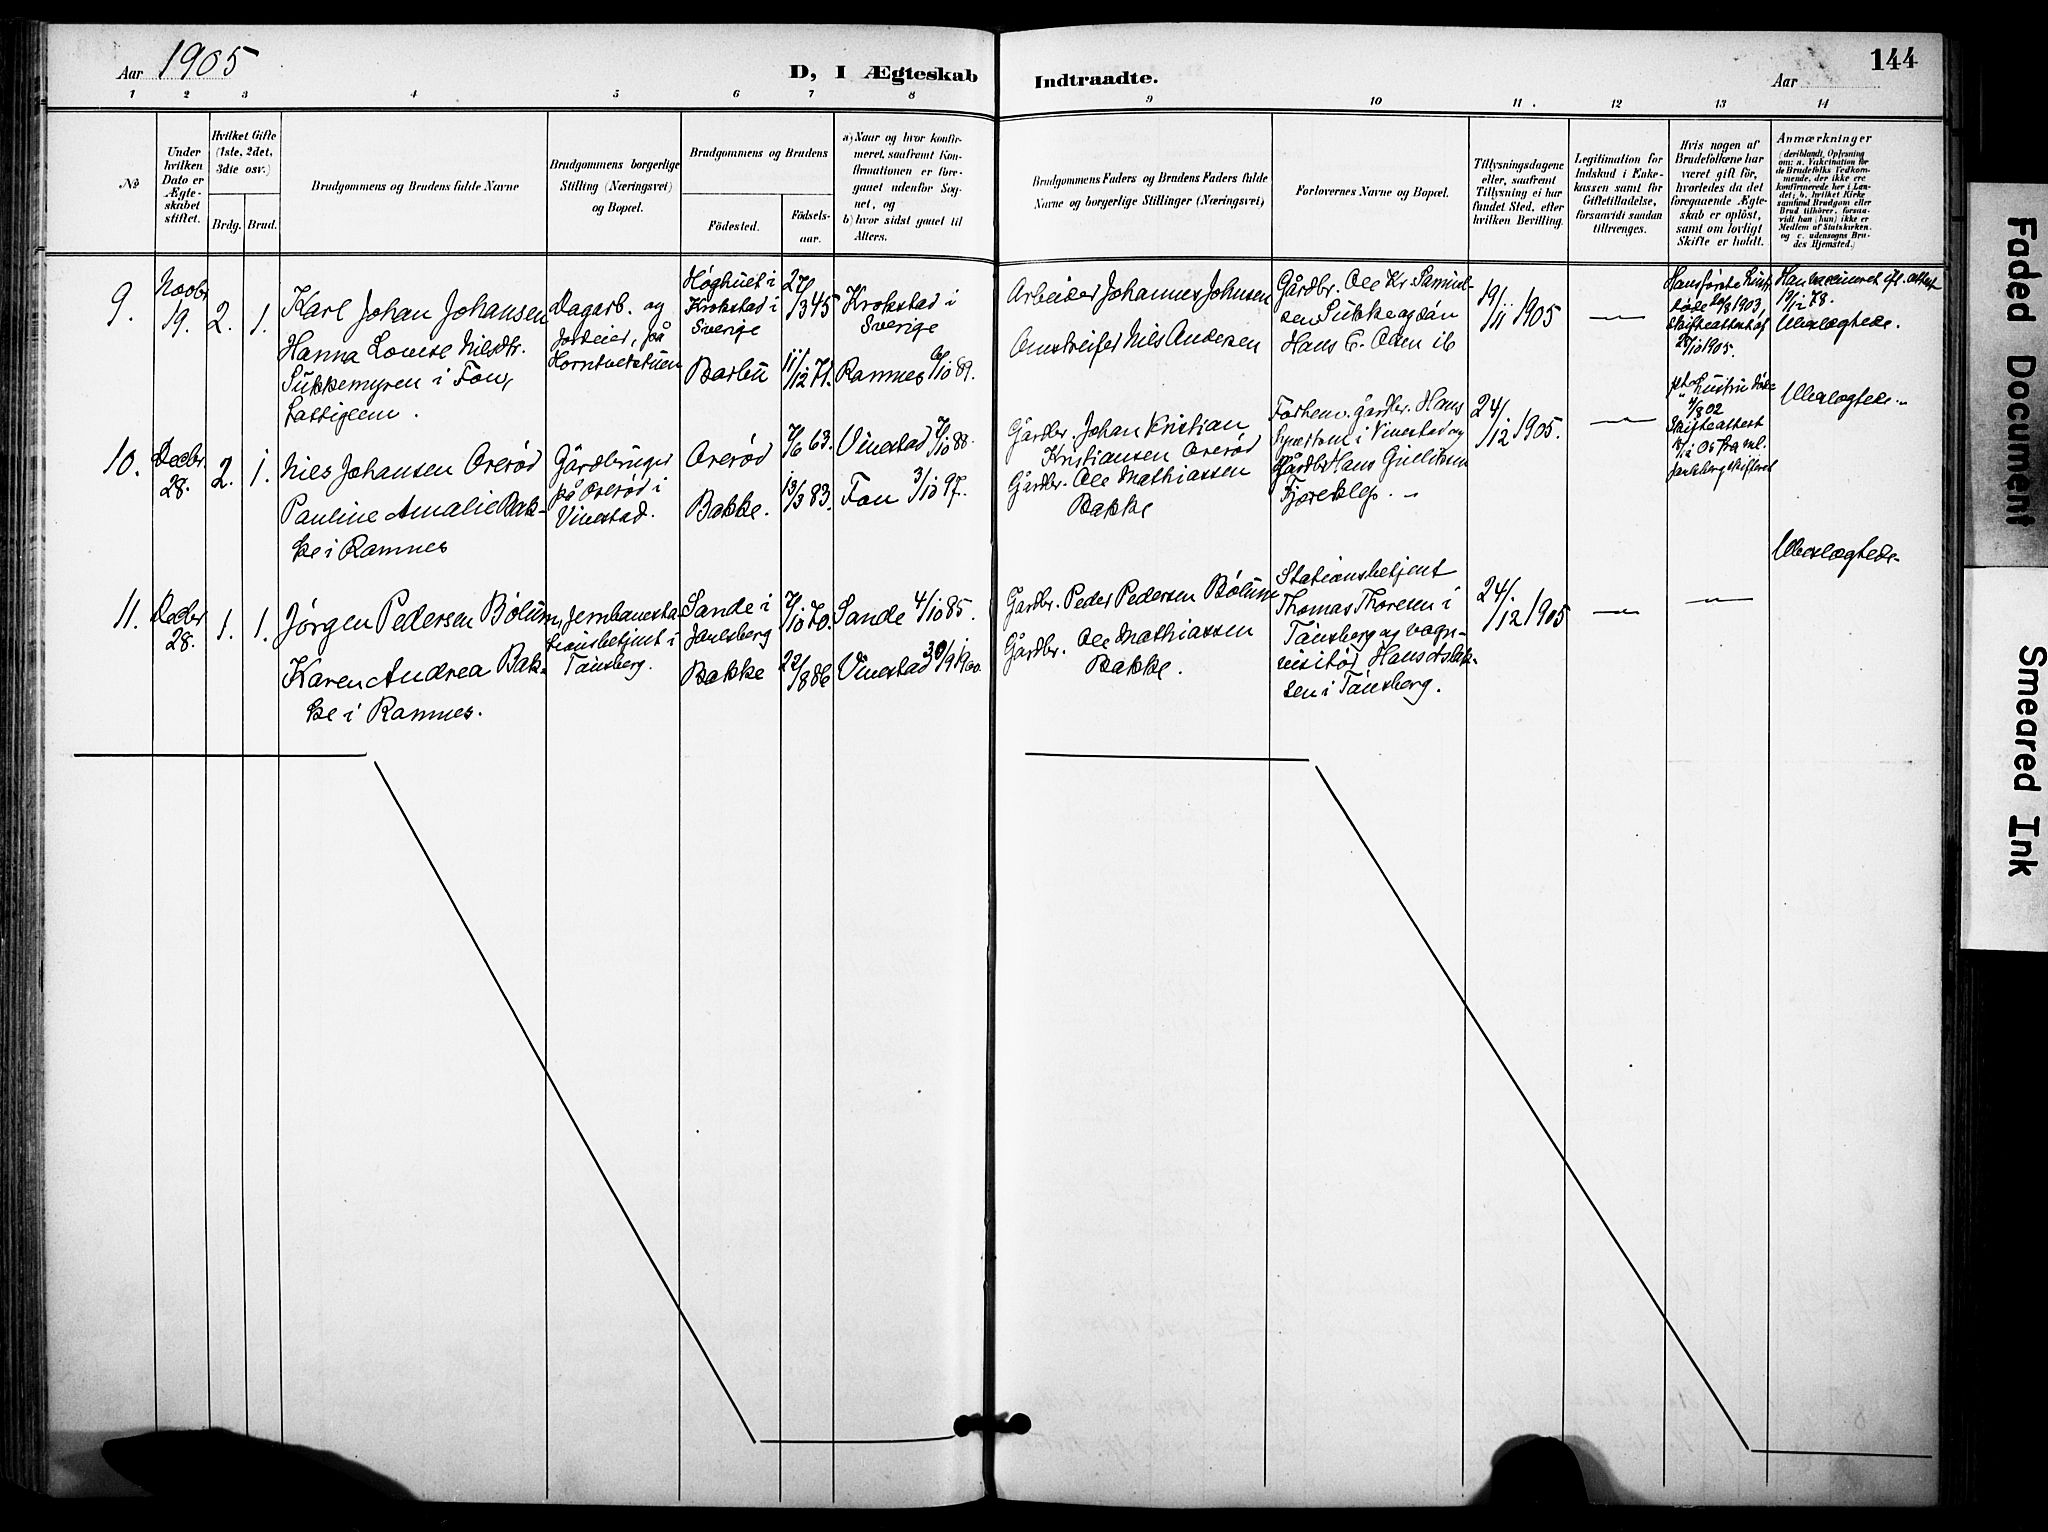 Aar 1905
D, I Ægteskab
Indtraadte.
Aar
144
1 2 3 4 5 6 7 8
9 10 11. 12 13 14
No
Under
hvilken
Dato er
Ægte-
skabet
stiftet.
Hvilket Gifte
(1ste, 2det,
3die osv.)
Brdg. Brud.
Brudgommens og Brudens fulde Navne
Brudgommens borgerlige
Stilling (Næringsvei)
og Bopæl.
Brudgommens og Brudens
Fødested.
Fødsels-
aar.
a) Naar og hvor konfir-
meret, saafremt Kon-
firmationen er fore-
gaaet udenfor Sog-
net, og
b) hvor sidst gaaet til
Alters.
Brudgommens Faders og Brudens Faders fulde
Navne og borgerlige Stillinger (Næringsvei)
Forlovernes Navne og Bopæl.
Tillysningsdagene
eller, saafremt
Tillysning ei har
fundet Sted, efter
hvilken Bevilling.
Legitimation for
Indskud i Enke-
kassen samt for
Giftetilladelse,
forsaavidt saadan
tiltrænges.
Hvis nogen af
Brudefolkene har
været gift før,
hvorledes da det
foregaaende Ægte-
skab er opløst,
samt om lovligt
Skifte er holdt.
Anmærkninger
(deriblandt Oplysning
om: a. Vakcination for
de Brudefolks Vedkom-
mende, der ikke ere
konfirmerede her i Lan-
det; b. hvilket Kirke
samfund Brudgom eller
Brud tilhører, forsaa-
vidt han (hun) ikke er
Medlem af Statskirken,
og c. udensogns Bru-
des Hjemsted.)
9.
Novbr
19.
2. 1.
Karl Johan Johansen
Hanna Lovise Nilsdtr.
Sukkemyren i Fon,
Dagarb. og
jordeier, på
Horntvetstuen
Høghuet i
Krokstad i
Sverige
27/3 45
Krokstad i
Sverige
Barbu
11/12 71.
Ramnes 6/10 89.
Arbeider Johannes Johnsen
Omstreifer Nils Andersen
Gårdbr. Ole Kr. Samuel-
sen Sukke og søn
Hans E. Olsen ib
19/11 1905
Hans første Hust.
døde 20/8 1903,
Skifteattest af
28/10 1905.
Han vaccineret efl. attest
19/12 78.
Ubeslægtede.
10.
Decbr
28.
2. 1.
Nils Johansen Orerød
Pauline Amalie Bak-
ke i Ramnes
Gårdbruger
på Orerød i
Vivestad.
Orerød
7/6 63.
Vivestad 7/10 88.
Bakke.
13/3 83.
Fon 3/10 97.
Gårdbr. Johan Kristian
Kristiansen Orerød
Gårdbr. Ole Mathiassen
Bakke
Forhenv. gårdbr. Hans
i Vivestad og
Gårdbr Hans Gulliksen
24/12 1905.
Hustru døde
4/8 02
Skifteattest
Ubeslægtede.
11.
Decbr
28.
1. 1.
Jørgen Pedersen Bølum,
Karen Andrea Bak-
ke i Ramnes.
Jernbanesta-
tionsbetjent i
Tønsberg.
Sande i
Jarlsberg
7/10 70.
Sande 4/10 85.
Bakke
22/8 86
Vivestad 30/9 1900
Gårdbr. Peder Pedersen Bølum
Gårdbr. Ole Mathiassen
Bakke.
Stationsbetjent
Thomas Thoresen i
Tønsberg og vogn-
visitør Hans Aslak-
sen i Tønsberg.
24/12 1905
Ubeslægtede.
Faded Document
Smeared Ink